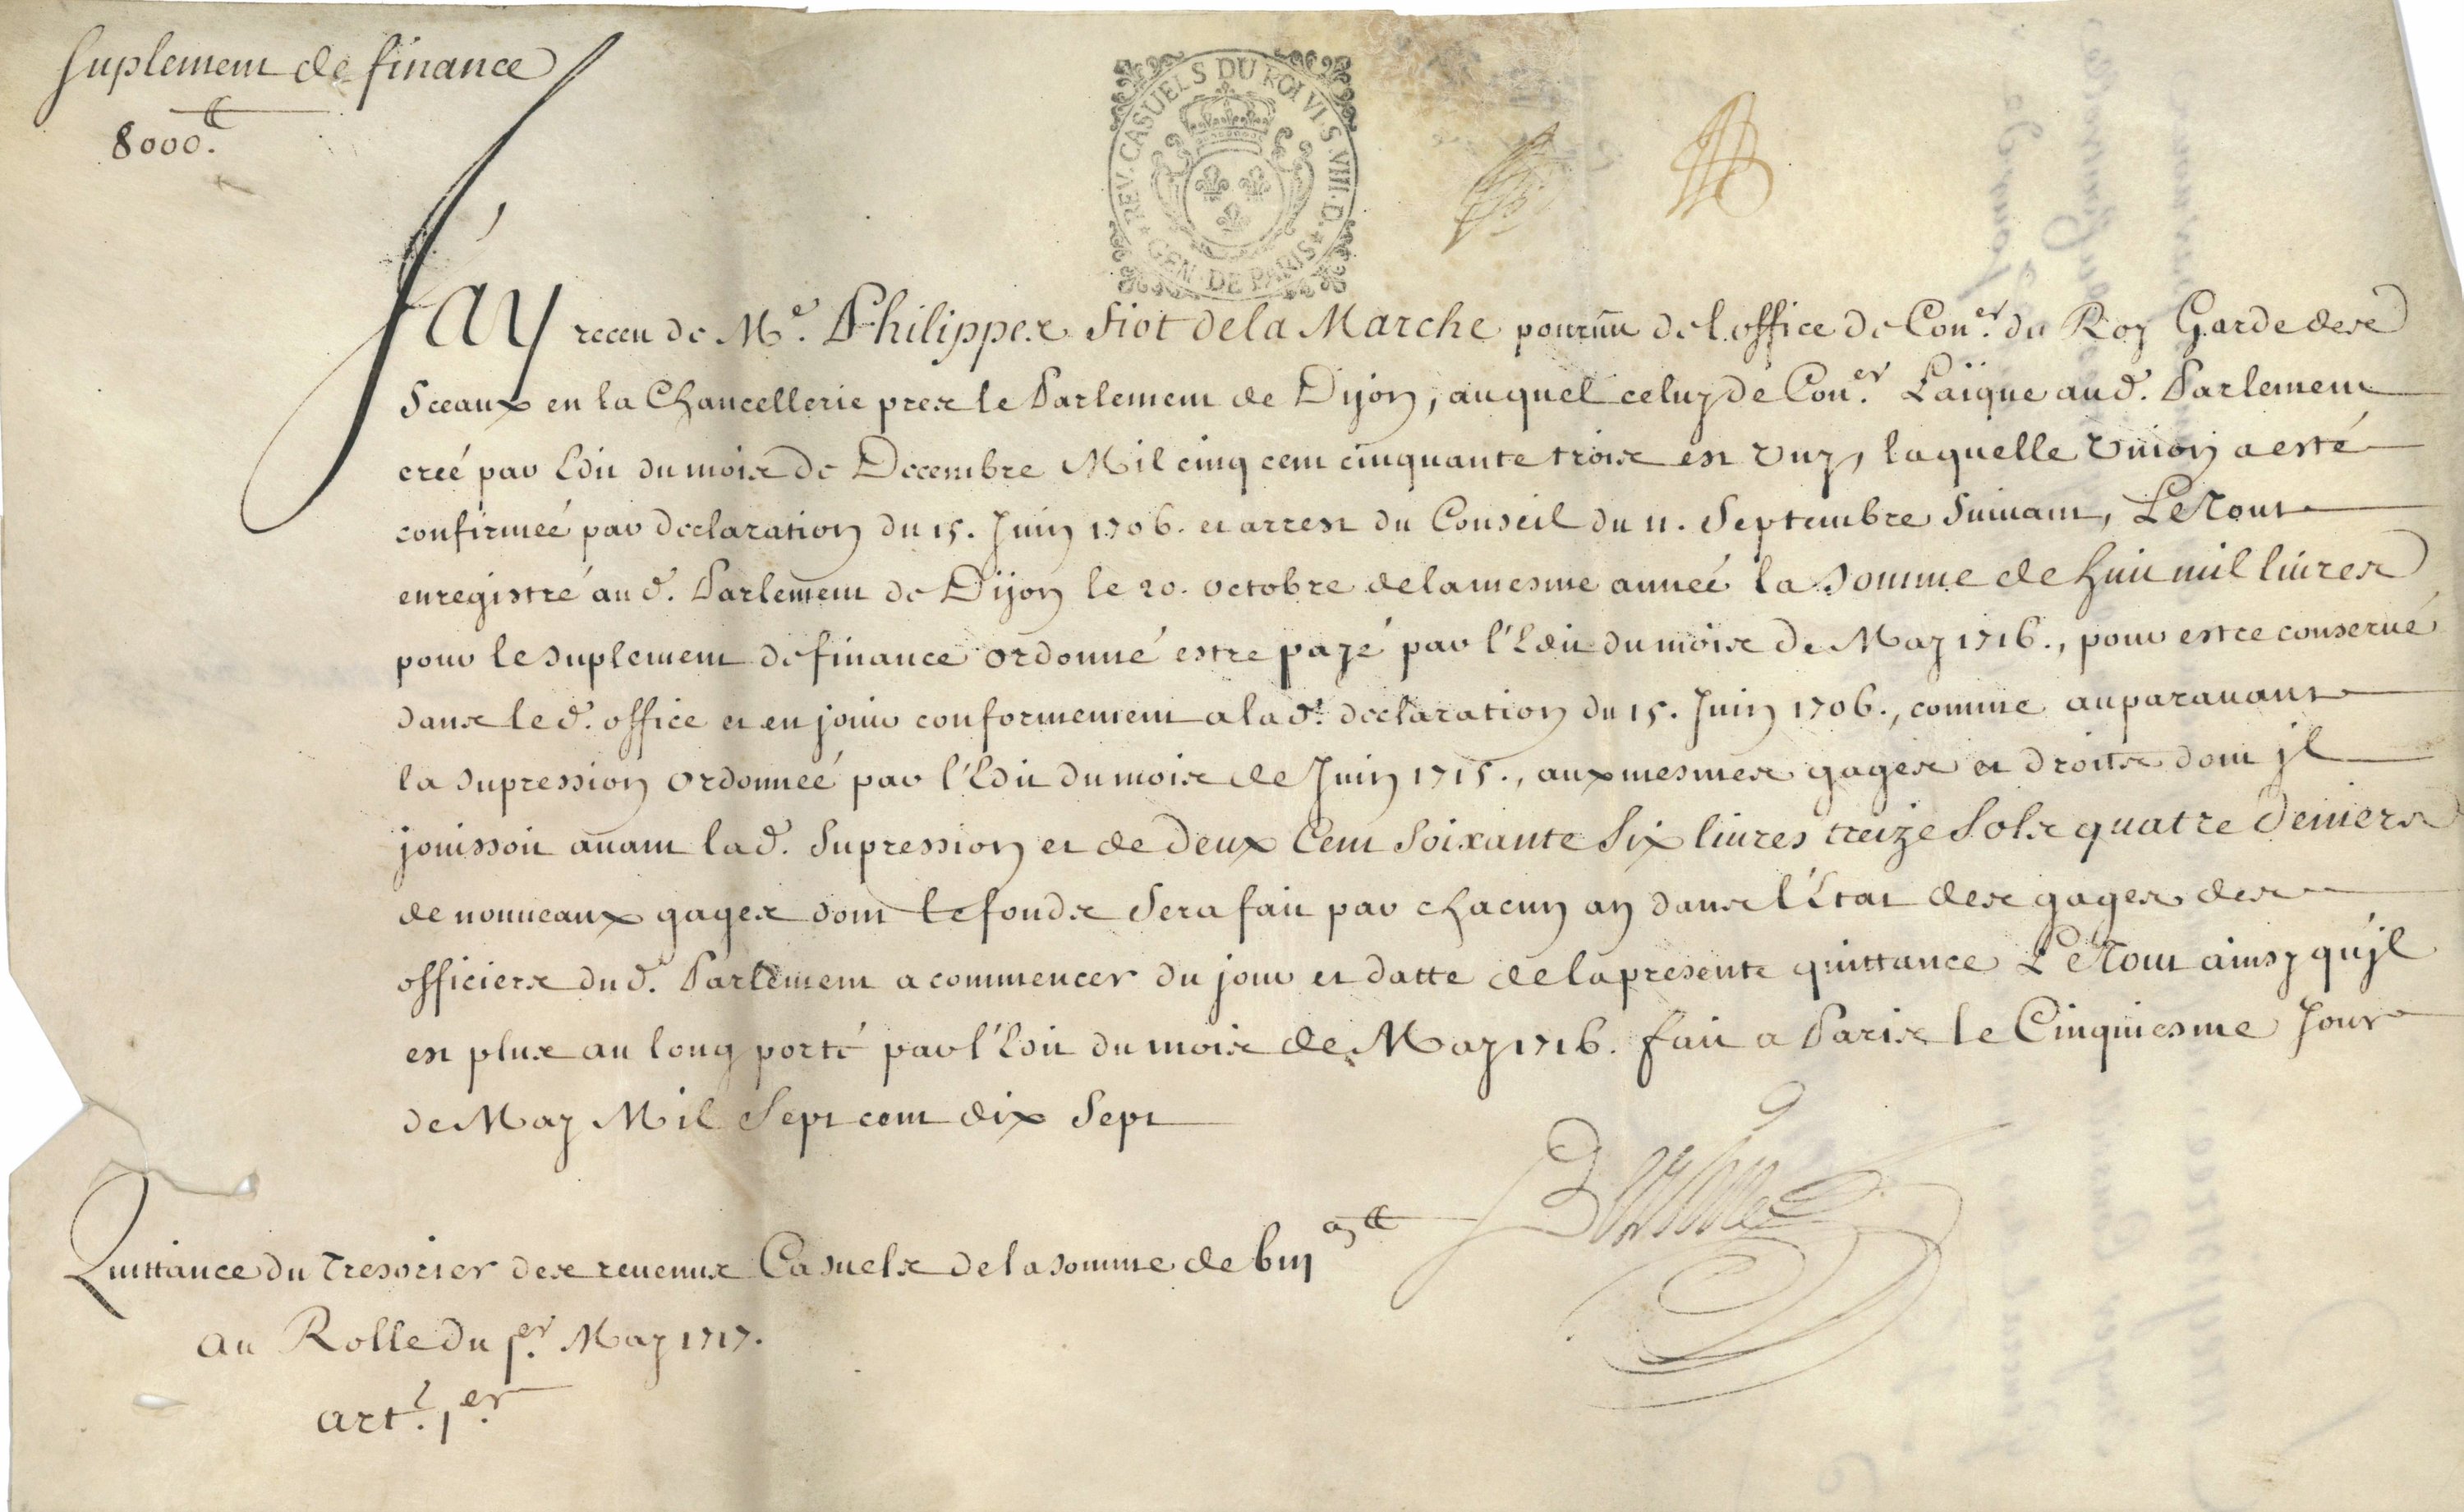 Suplement de finance
8000.ᵗᵗ
REV. CASUELS DU ROI VI.S.VIII.D.
GEN. DE PARIS
J'ay receu de Mᵉ. Philippes Fiot de la Marche pourvu de l'office de Con.ᵉʳ du Roy Garde des
Sceaux en la Chancellerie pres le Parlement de Dijon, auquel celuy de Con.ᵉʳ Laïque aud. Parlement
creé par Edit du mois de Decembre Mil cinq cent cinquante trois est uny, laquelle Union a esté
confirmeé par declaration du 15. Juin 1706. et arrest du Conseil du 11. Septembre Suivant, Le Tout
enregistré aud. Parlement de Dijon le 20. octobre de la mesme anneé la Somme de huit mil livres
pour le suplement de finance ordonné estre payé par l'Edit du mois de May 1716., pour estre conservé
dans led. office et en jouir conformement a lad. declaration du 15. Juin 1706., comme auparavant
la supression ordonneé par l'Edit du mois de Juin 1715., aux mesmes gages et droits dont jl
jouissoit avant lad. Supression et de deux Cent Soixante Six livres treize Sols quatre deniers
de nouveaux gages dont le fonds Sera fait par chacun an dans l'Etat des gages des
officiers dud. Parlement a commencer du jour et datte de la presente quittance Le Tout ainsy qu'jl
est plus au long porté par l'Edit du mois de May 1716. fait a Paris le Cinquiesme Jour
de May Mil Sept cent dix Sept
Quittance du Tresorier des revenus Casuels de la somme de 8000 ᵗᵗ
au Rolle du 1.ᵉʳ May 1717.
art. 1.ᵉʳ